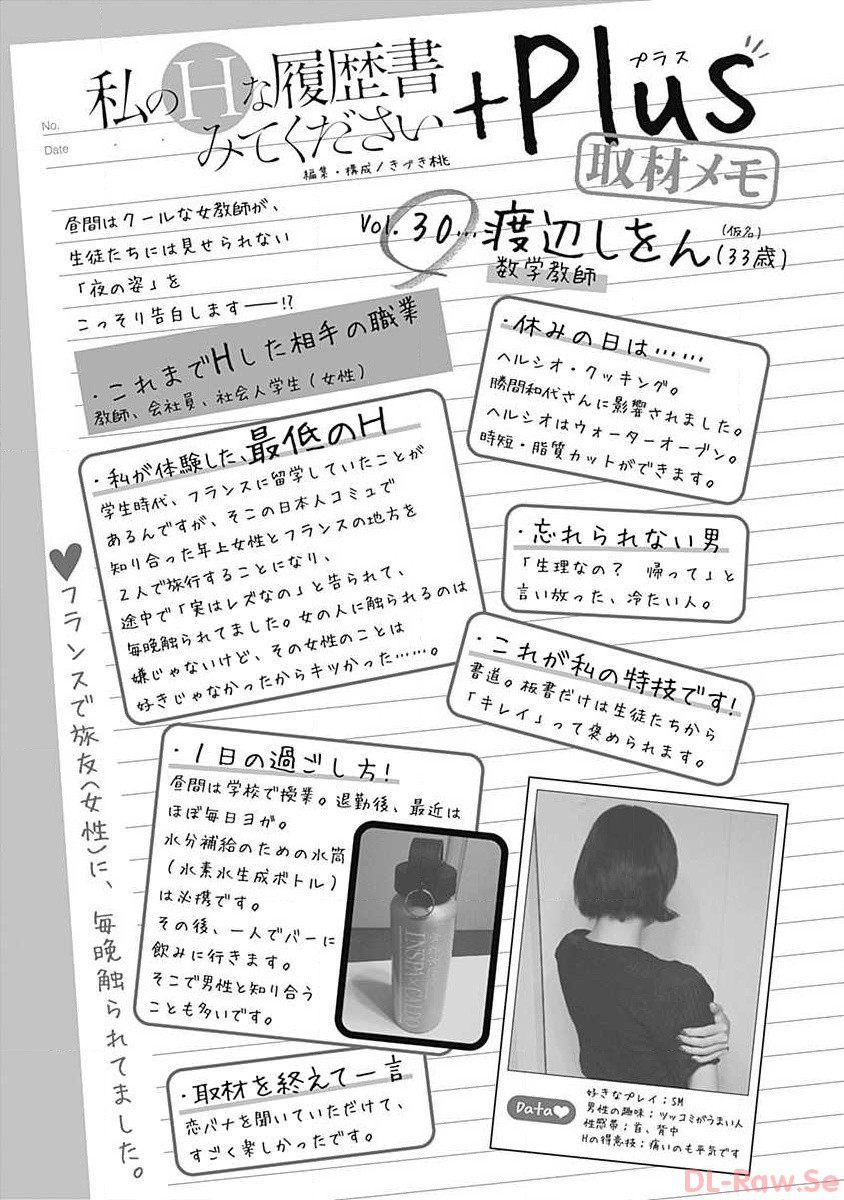 No.
Date
私のHな履歴書
みてください
+Plus
プラス
編集・構成/きづき桃
取材メモ
昼間はクールな女教師が、
生徒たちには見せられない
「夜の姿」を
こっそり告白します――!?
Vol. 30…渡辺しをん(仮名)(33歳)
数学教師
・これまでHした相手の職業
教師、会社員、社会人学生(女性)
・休みの日は……
ヘルシオ・クッキング。
勝間和代さんに影響されました。
ヘルシオはウォーターオーブン。
時短・脂質カットができます。
・私が体験した、最低のH
学生時代、フランスに留学していたことが
あるんですが、そこの日本人コミュで
知り合った年上女性とフランスの地方を
2人で旅行することになり、
途中で「実はレズなの」と告られて、
毎晩触られてました。女の人に触られるのは
嫌じゃないけど、その女性のことは
好きじゃなかったからキツかった……。
・忘れられない男
「生理なの? 帰って」と
言い放った、冷たい人。
・これが私の特技です!
書道。板書だけは生徒たちから
「キレイ」って褒められます。
♥フランスで旅友(女性)に、毎晩触られてました。
・1日の過ごし方!
昼間は学校で授業。退勤後、最近は
ほぼ毎日ヨガ。
水分補給のための水筒
(水素水生成ボトル)
は必携です。
その後、一人でバーに
飲みに行きます。
そこで男性と知り合う
ことも多いです。
・取材を終えて一言
恋バナを聞いていただけて、
すごく楽しかったです。
Data♥
好きなプレイ;SM
男性の趣味;ツッコミがうまい人
性感帯;首、背中
Hの得意技;痛いのも平気です
DL-Raw.Se